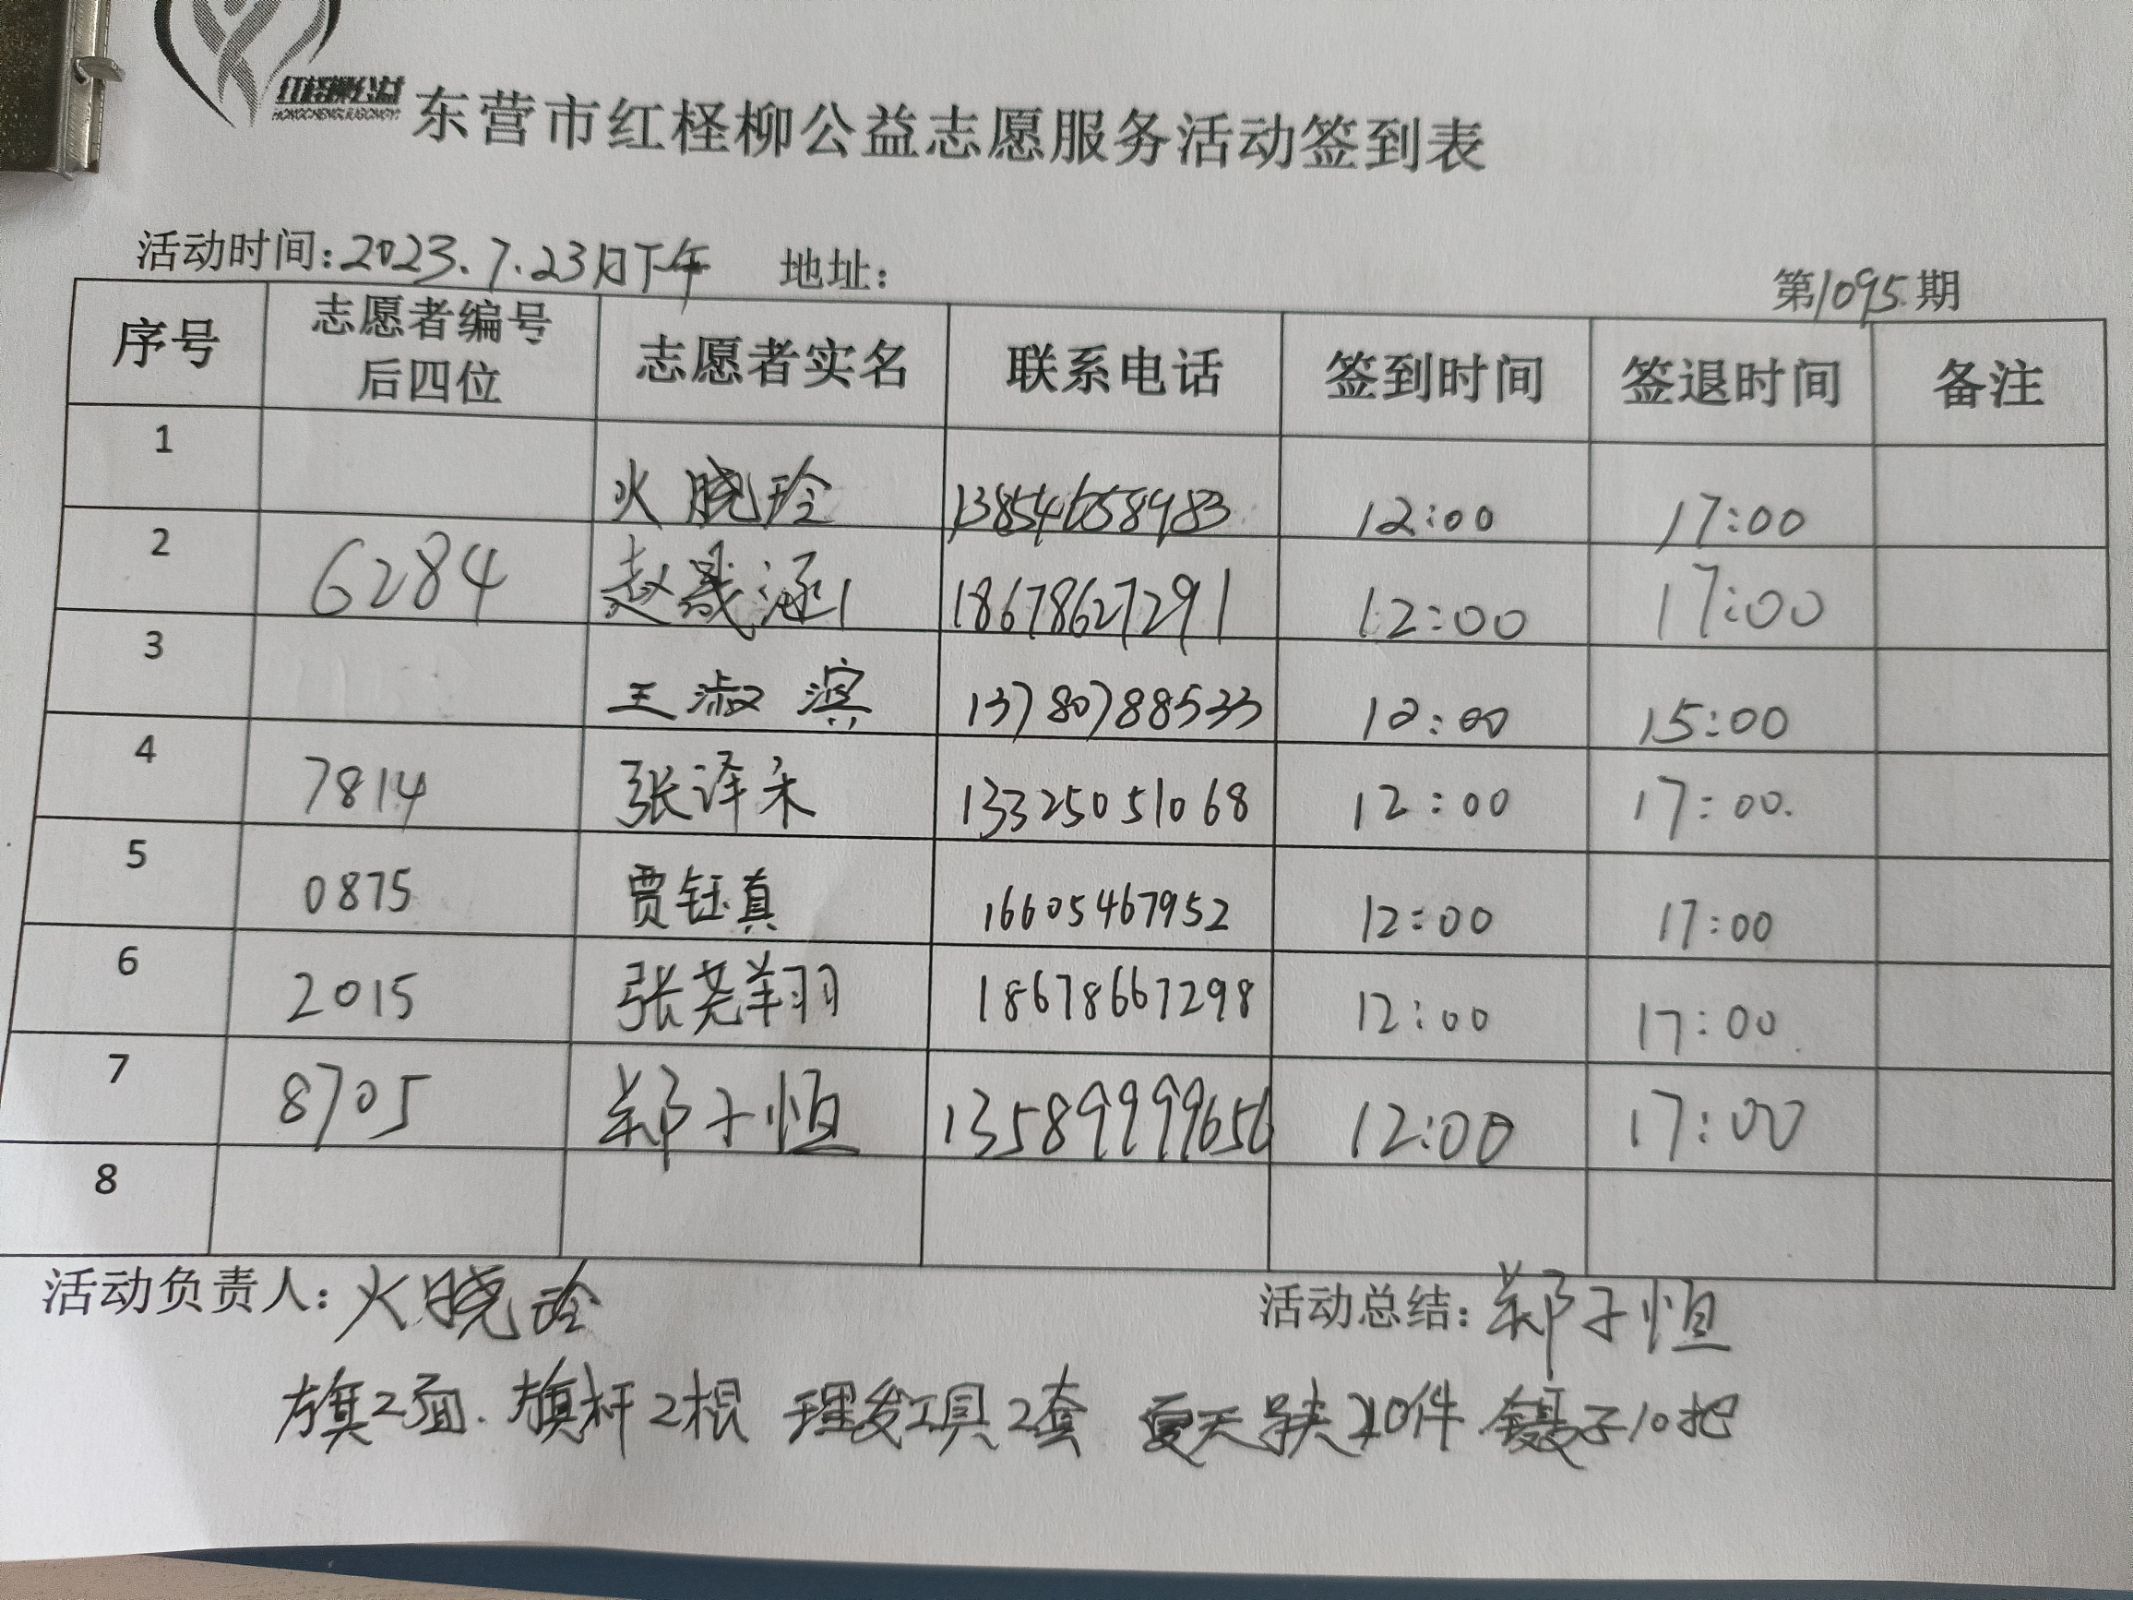 红柽柳公益
HONGCHENGLIUGONGYI
东营市红柽柳公益志愿服务活动签到表
活动时间:2023.7.23日下午 地址: 第1095期
序号 志愿者编号后四位 志愿者实名 联系电话 签到时间 签退时间 备注
1 火晓玲 13854658983 12:00 17:00
2 6284 赵晟涵 18678627291 12:00 17:00
3 王淑滨 13780788533 12:00 15:00
4 7814 张泽禾 13325051068 12:00 17:00.
5 0875 贾钰真 16605467952 12:00 17:00
6 2015 张尧翔 18678667298 12:00 17:00
7 8705 郑子恒 13589999656 12:00 17:00
8
活动负责人:火晓玲 活动总结:郑子恒
旗2面. 旗杆2根 理发工具2套 夏天 10件 镊子10把